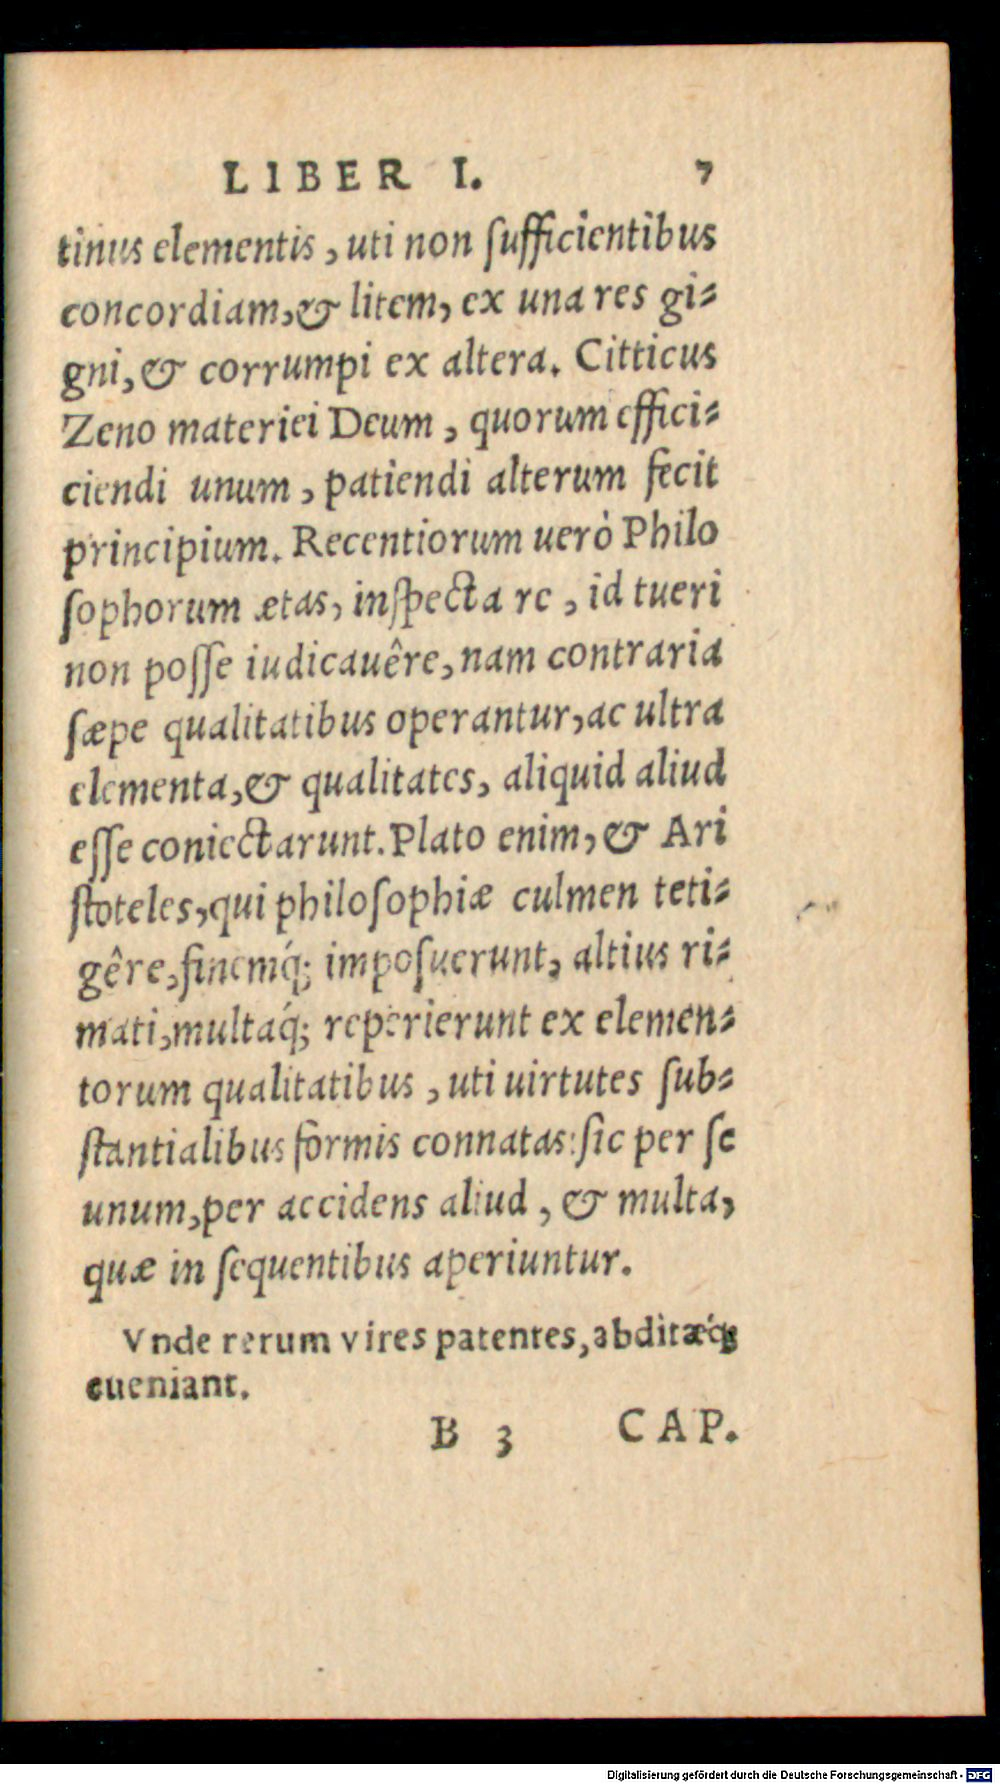 LIBER I. 7
tinus elementis, uti non ſufficientibus
concordiam, & litem, ex una res gi-
gni, & corrumpi ex altera. Citticus
Zeno materiei Deum, quorum effici-
ciendi unum, patiendi alterum fecit
principium. Recentiorum uerò Philo
ſophorum ætas, inſpecta re, id tueri
non poſſe iudicauêre, nam contraria
ſæpe qualitatibus operantur, ac ultra
elementa, & qualitates, aliquid aliud
eſſe coniectarunt. Plato enim, & Ari
ſtoteles, qui philoſophiæ culmen teti-
gêre, finemq́; impoſuerunt, altius ri-
mati, multaq́; reperierunt ex elemen-
torum qualitatibus, uti uirtutes ſub-
ſtantialibus formis connatas: ſic per ſe
unum, per accidens aliud, & multa,
quæ in ſequentibus aperiuntur.
Vnde rerum vires patentes, abditæq́;
eueniant.
B 3 CAP.
Digitalisierung gefördert durch die Deutsche Forschungsgemeinschaft - DFG